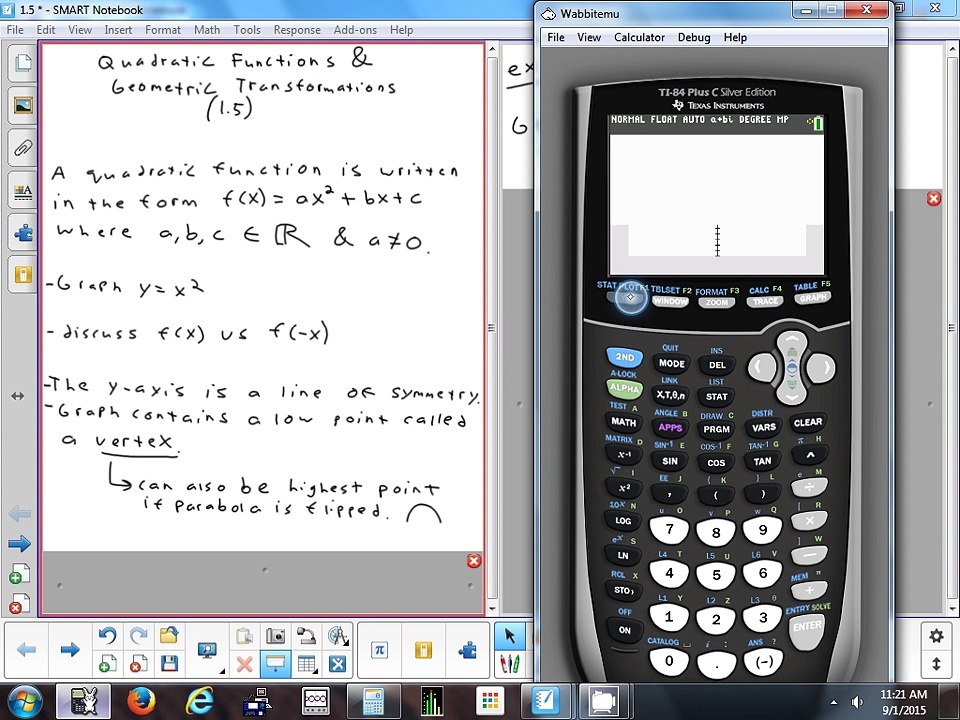 1.5 * - SMART Notebook
File Edit View Insert Format Math Tools Response Add-ons Help
Quadratic Functions &
Geometric Transformations
(1.5)
A quadratic function is written
in the form f(x) = ax² + bx + c
where a, b, c ∈ ℝ & a ≠ 0.
- Graph y = x²
- discuss f(x) vs f(-x)
- The y-axis is a line of symmetry.
- Graph contains a low point called
a vertex.
can also be highest point
if parabola is flipped.
ex
G
Wabbitemu
File View Calculator Debug Help
TI-84 Plus C Silver Edition
TEXAS INSTRUMENTS
NORMAL FLOAT AUTO a+bi DEGREE MP
STAT PLOT F1 TBLSET F2 FORMAT F3 CALC F4 TABLE F5
WINDOW ZOOM TRACE GRAPH
QUIT INS
2ND MODE DEL
A-LOCK LINK LIST
ALPHA X,T,θ,n STAT
TEST A ANGLE B DRAW C DISTR
MATH APPS PRGM VARS CLEAR
MATRIX D SIN⁻¹ E COS⁻¹ F TAN⁻¹ G π H
x⁻¹ SIN COS TAN ^
√ I EE J { K } L e M
x² , ( ) ÷
10ˣ N u O v P w Q [ R
LOG 7 8 9 ×
eˣ S L4 T L5 U L6 V ] W
LN 4 5 6 −
RCL X L1 Y L2 Z L3 θ MEM "
STO› 1 2 3 +
OFF CATALOG i : ANS ? ENTRY SOLVE
ON 0 . (-) ENTER
11:21 AM
9/1/2015